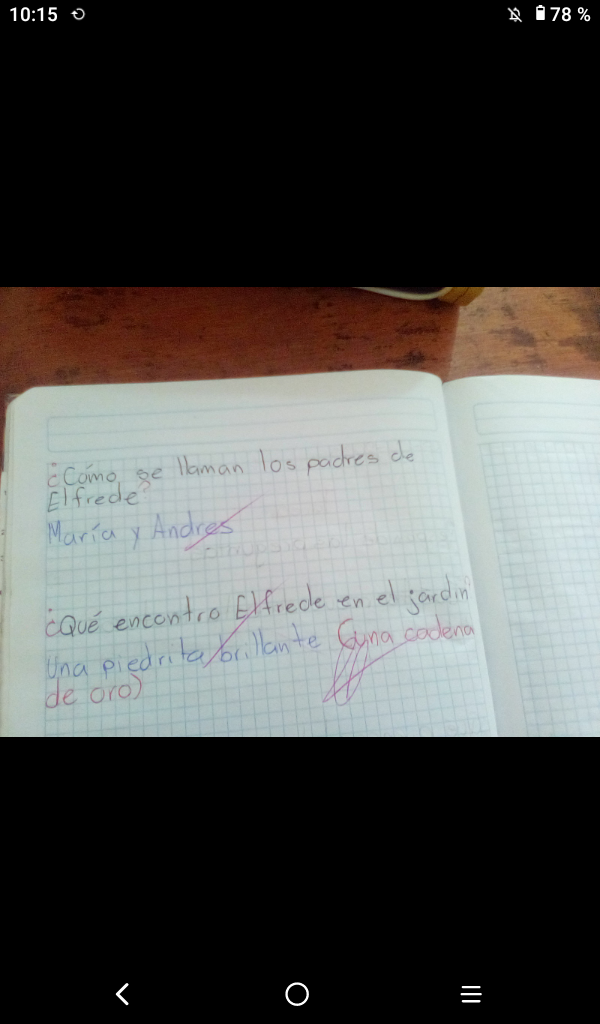 10:15
78 %
¿Cómo se llaman los padres de
Elfrede?
María y Andres
¿Qué encontro Elfrede en el jardin?
Una piedrita brillante (una cadena
de oro)